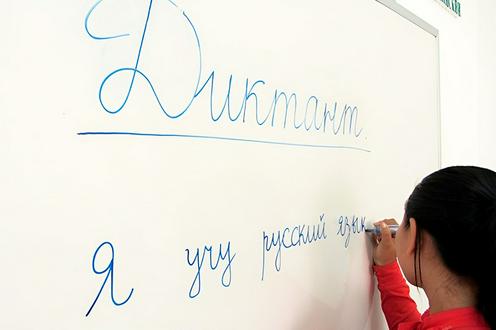 Диктант.
Я учу русский язык